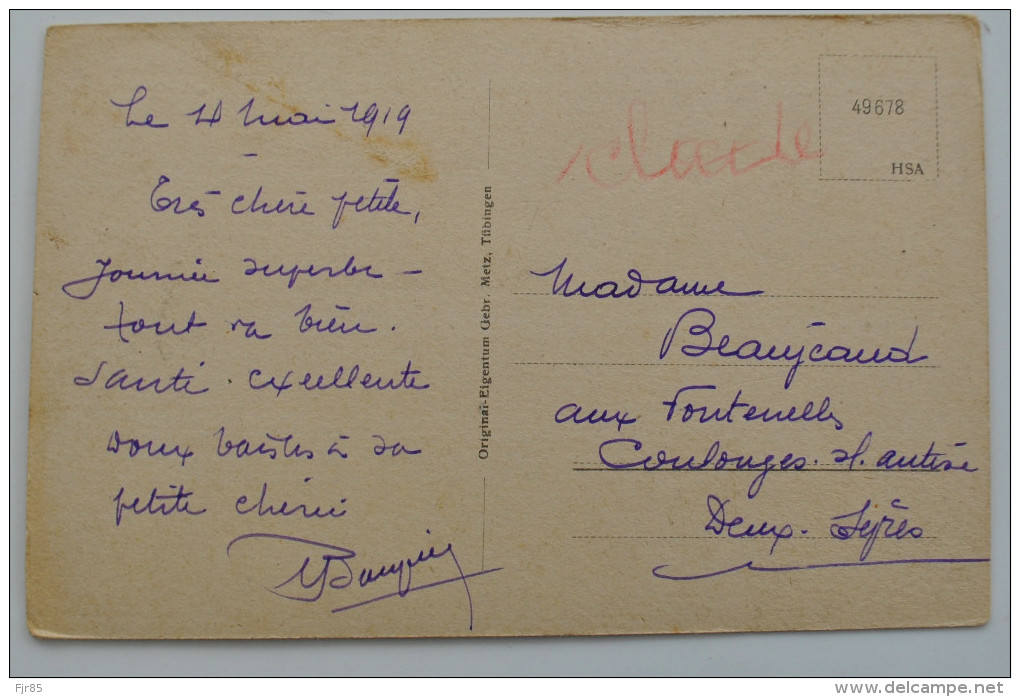 Le 11 Mai 1919
Très chère petite,
Journée superbe –
tout va bien.
Santé excellente
Doux baisers à sa
petite chérie
Original-Eigentum Gebr. Metz, Tübingen
49678
HSA
Madame
Beaujeand
aux Fontenelles
Coulonges. s/. autise
Deux-Sèvres
Fjr85
www.delcampe.net